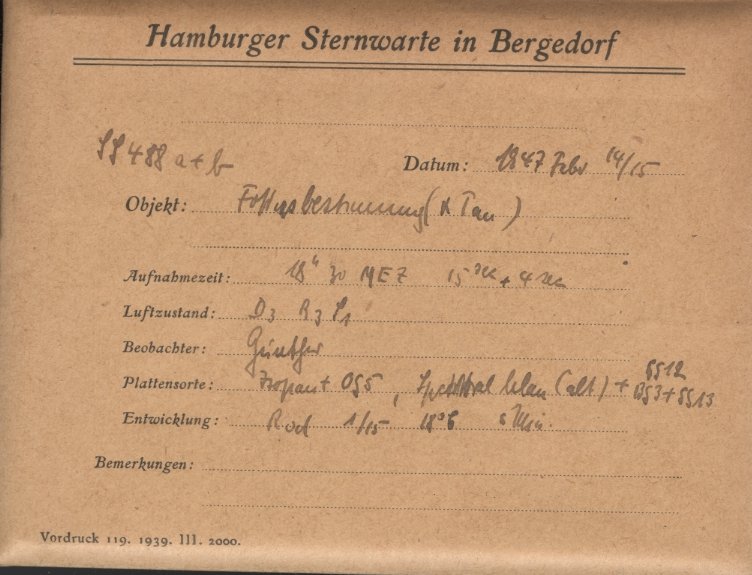 Hamburger Sternwarte in Bergedorf
SS 488 a+b
Datum: 1947 Febr 14/15
Objekt: (α Tau)
Aufnahmezeit: 18h 30 MEZ 15 sec + 4 sec
Luftzustand: D3 R3 S1
Beobachter: Günther
Plattensorte: Isopan + OG5, Spektral blau (alt) + GG12 BG3+GG13
Entwicklung: Rod 1/15 18° 6 Min.
Bemerkungen:
Vordruck 119. 1939. III. 2000.